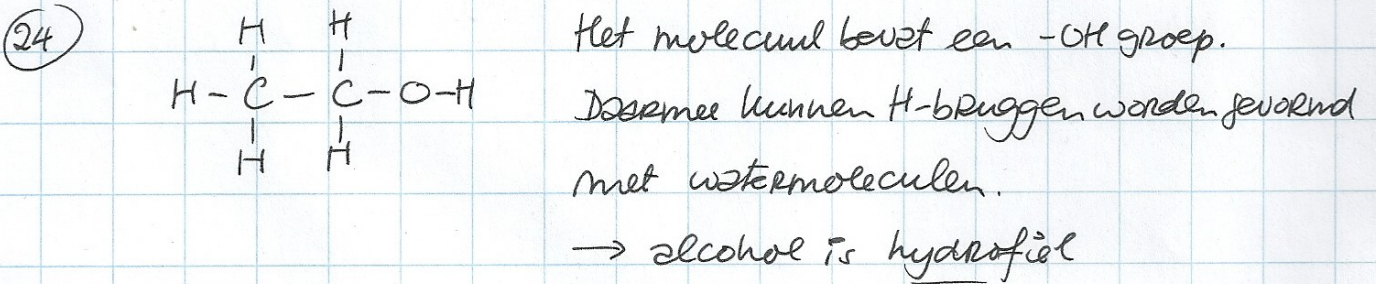 24
H H
H - C - C - O - H
H H
Het molecuul bevat een -OH groep.
Daarmee kunnen H-bruggen worden gevormd
met watermoleculen.
→ alcohol is hydrofiel